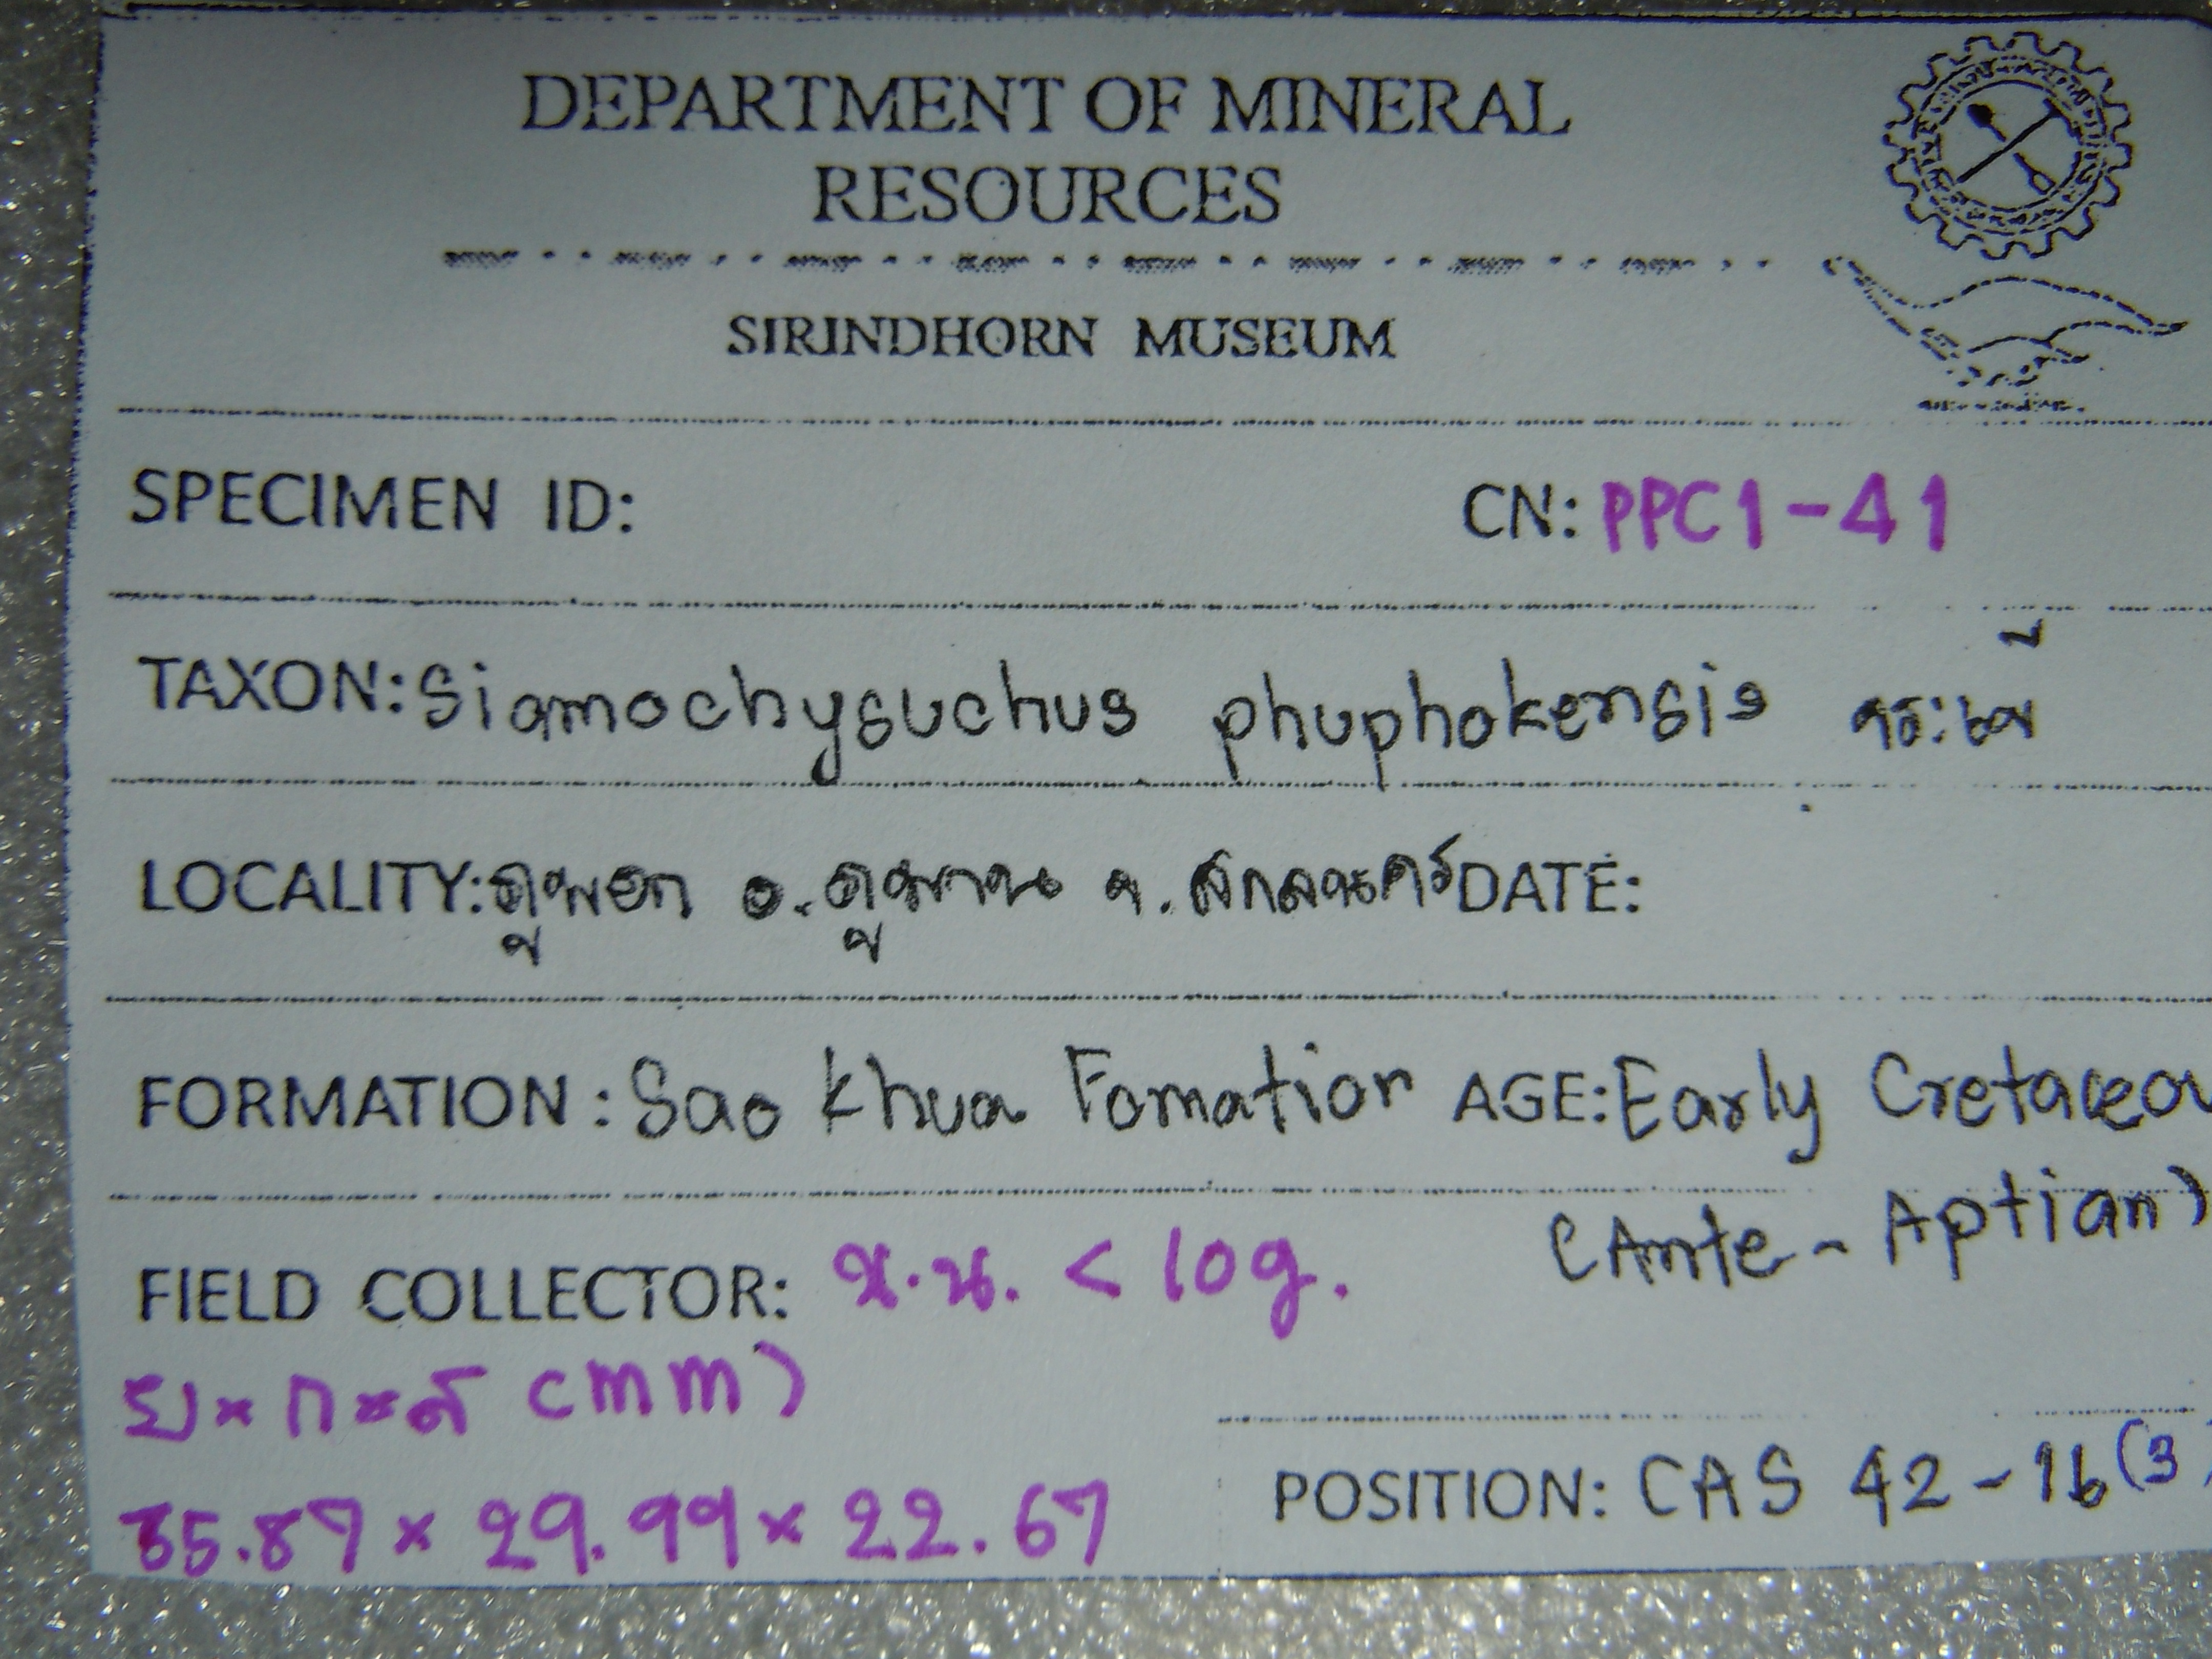 DEPARTMENT OF MINERAL
RESOURCES
SIRINDHORN MUSEUM
SPECIMEN ID: CN: PPC1-41
TAXON: Siamochysuchus phuphokensis จระเข้
LOCALITY: ภูพอก อ.ภูพาน จ.สกลนคร DATE:
FORMATION : Sao Khua Fomation AGE: Early Cretaceou
(Ante-Aptian)
FIELD COLLECTOR: น.น. < 10g.
ย × ก × ส (mm)
35.87 × 29.99 × 22.67
POSITION: CAS 42-16(3)